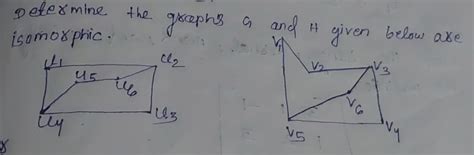 Determine the graphs G and H given below are
isomorphic.
u1 u2 u5 u6 u4 u3
v1 v2 v3 v6 v5 v4